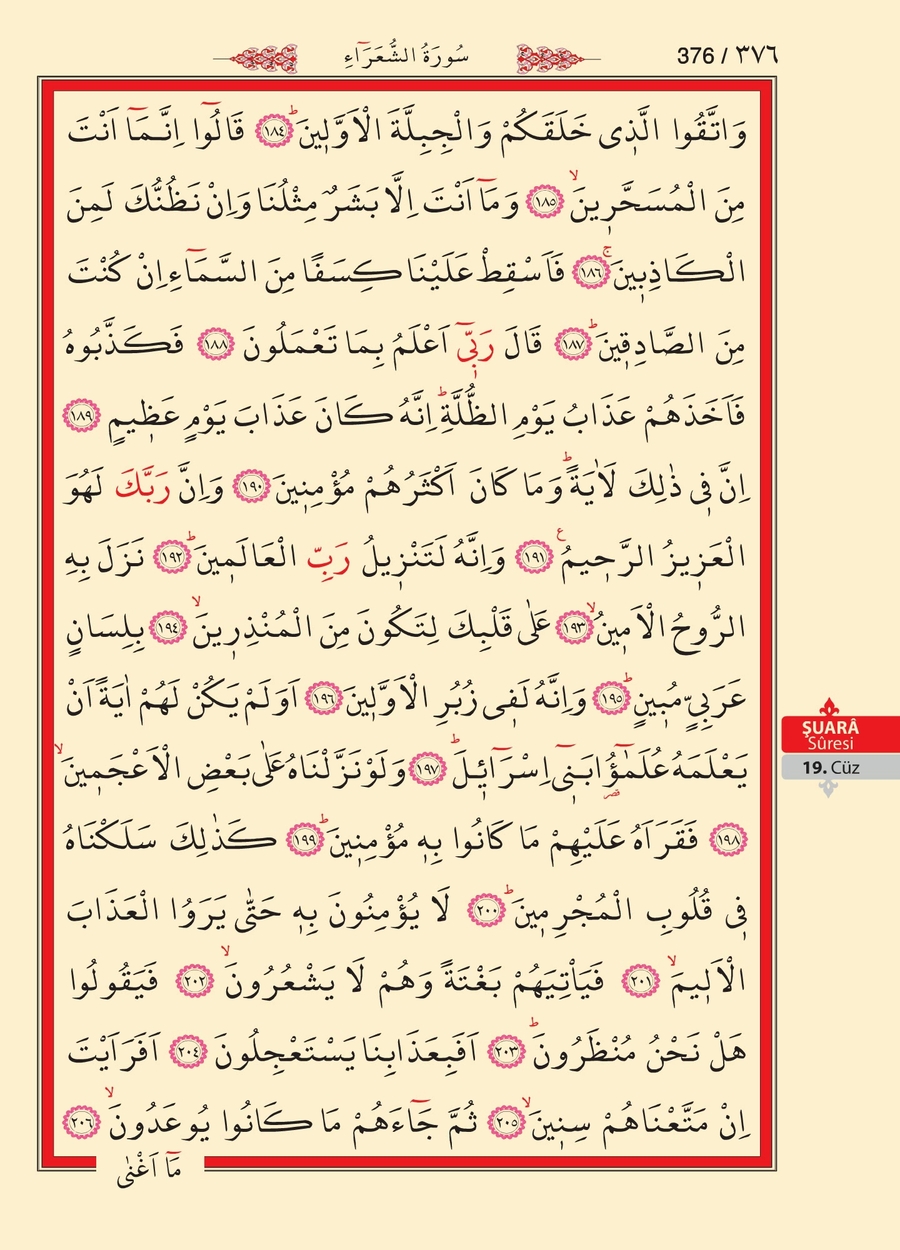 سُورَةُ الشُّعَرَٓاءِ
376 / ٣٧٦
وَاتَّقُوا الَّذ۪ي خَلَقَكُمْ وَالْجِبِلَّةَ الْاَوَّل۪ينَۜ ﴿١٨٤﴾ قَالُٓوا اِنَّمَٓا اَنْتَ
مِنَ الْمُسَحَّر۪ينَۙ ﴿١٨٥﴾ وَمَٓا اَنْتَ اِلَّا بَشَرٌ مِثْلُنَا وَاِنْ نَظُنُّكَ لَمِنَ
الْكَاذِب۪ينَۚ ﴿١٨٦﴾ فَاَسْقِطْ عَلَيْنَا كِسَفًا مِنَ السَّمَٓاءِ اِنْ كُنْتَ
مِنَ الصَّادِق۪ينَۜ ﴿١٨٧﴾ قَالَ رَبّ۪ٓي اَعْلَمُ بِمَا تَعْمَلُونَ ﴿١٨٨﴾ فَكَذَّبُوهُ
فَاَخَذَهُمْ عَذَابُ يَوْمِ الظُّلَّةِۜ اِنَّهُ كَانَ عَذَابَ يَوْمٍ عَظ۪يمٍ ﴿١٨٩﴾
اِنَّ ف۪ي ذٰلِكَ لَاٰيَةًۜ وَمَا كَانَ اَكْثَرُهُمْ مُؤْمِن۪ينَ ﴿١٩٠﴾ وَاِنَّ رَبَّكَ لَهُوَ
الْعَز۪يزُ الرَّح۪يمُ ع ﴿١٩١﴾ وَاِنَّهُ لَتَنْز۪يلُ رَبِّ الْعَالَم۪ينَۜ ﴿١٩٢﴾ نَزَلَ بِهِ
الرُّوحُ الْاَم۪ينُۙ ﴿١٩٣﴾ عَلٰى قَلْبِكَ لِتَكُونَ مِنَ الْمُنْذِر۪ينَۙ ﴿١٩٤﴾ بِلِسَانٍ
عَرَبِيٍّ مُب۪ينٍۜ ﴿١٩٥﴾ وَاِنَّهُ لَف۪ي زُبُرِ الْاَوَّل۪ينَ ﴿١٩٦﴾ اَوَلَمْ يَكُنْ لَهُمْ اٰيَةً اَنْ
يَعْلَمَهُ عُلَمٰٓؤُ۬ا بَن۪ٓي اِسْرَٓائ۪يلَۜ ﴿١٩٧﴾ وَلَوْ نَزَّلْنَاهُ عَلٰى بَعْضِ الْاَعْجَم۪ينَۙ
﴿١٩٨﴾ فَقَرَاَهُ عَلَيْهِمْ مَا كَانُوا بِه۪ مُؤْمِن۪ينَۜ ﴿١٩٩﴾ كَذٰلِكَ سَلَكْنَاهُ
ف۪ي قُلُوبِ الْمُجْرِم۪ينَۜ ﴿٢٠٠﴾ لَا يُؤْمِنُونَ بِه۪ حَتّٰى يَرَوُا الْعَذَابَ
الْاَل۪يمَۙ ﴿٢٠١﴾ فَيَأْتِيَهُمْ بَغْتَةً وَهُمْ لَا يَشْعُرُونَۙ ﴿٢٠٢﴾ فَيَقُولُوا
هَلْ نَحْنُ مُنْظَرُونَۜ ﴿٢٠٣﴾ اَفَبِعَذَابِنَا يَسْتَعْجِلُونَ ﴿٢٠٤﴾ اَفَرَاَيْتَ
اِنْ مَتَّعْنَاهُمْ سِن۪ينَۙ ﴿٢٠٥﴾ ثُمَّ جَٓاءَهُمْ مَا كَانُوا يُوعَدُونَۙ ﴿٢٠٦﴾
مَٓا اَغْنٰى
ŞUARÂ
Sûresi
19. Cüz